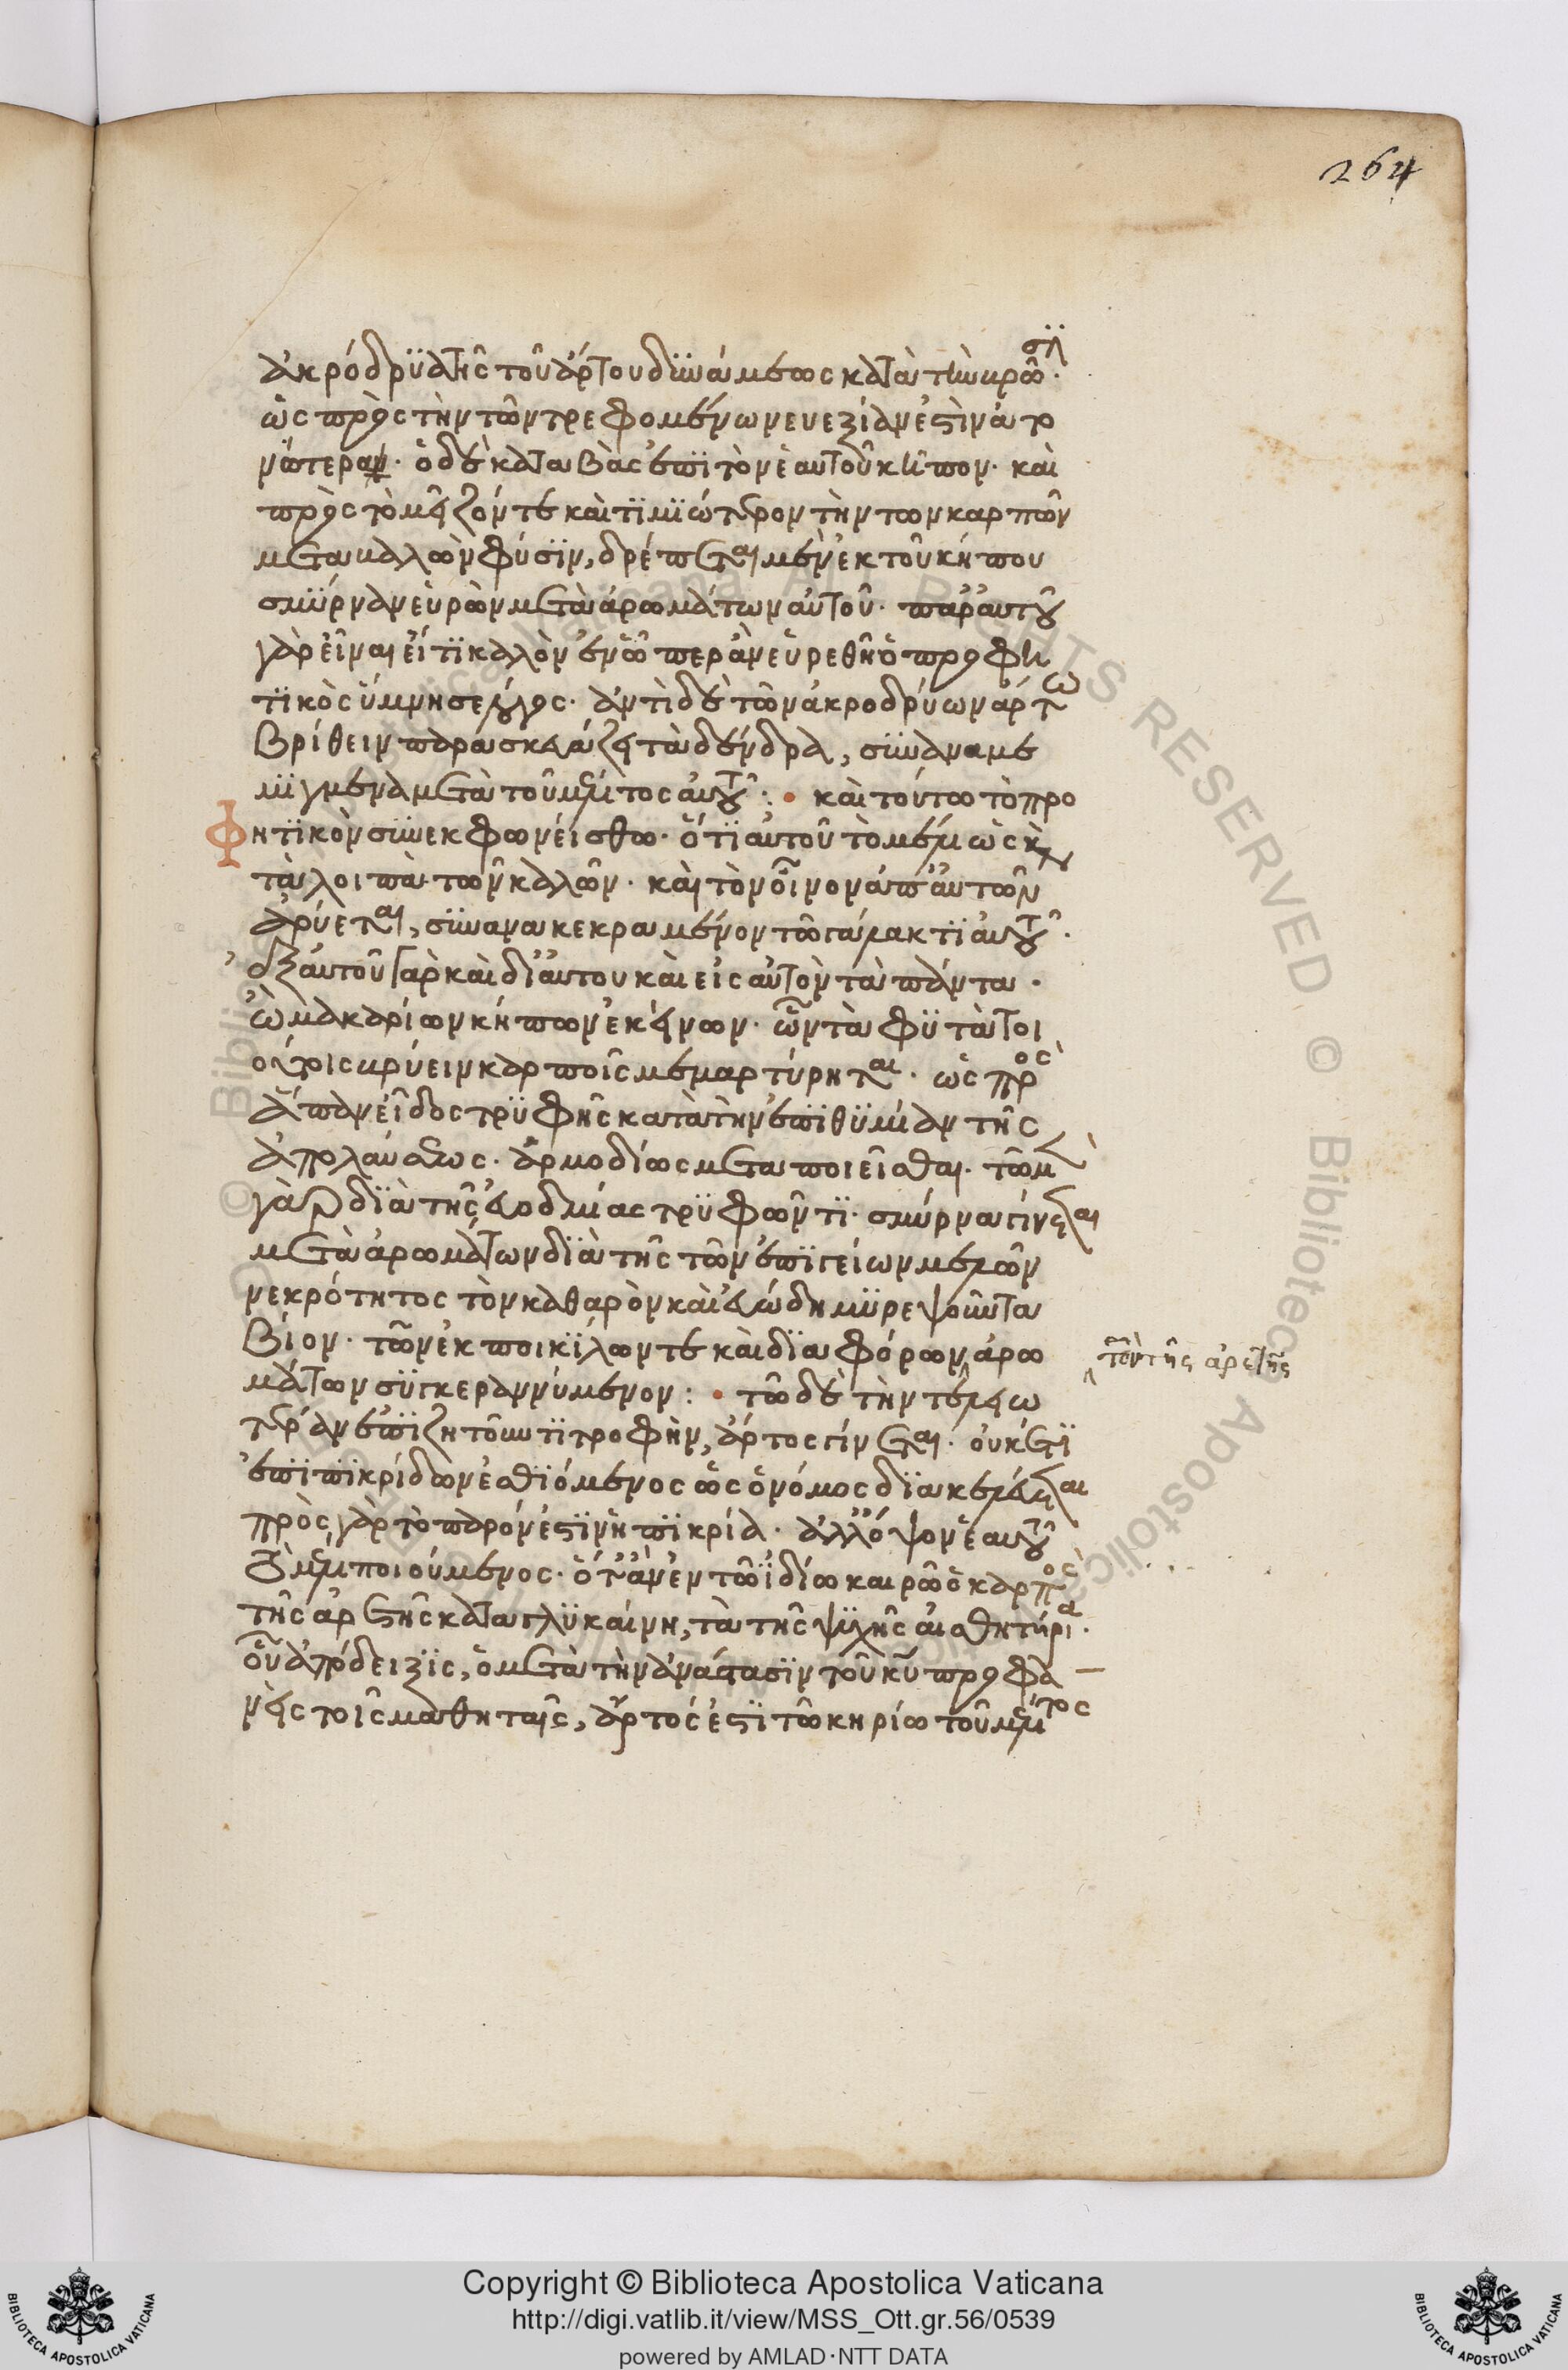 264
ἀκρόδρυα τῆς τοῦ ἄρτου δυνάμεως κατὰ τὴν κρᾶσιν.
ὡς πρὸς τὴν τῶν τρεφομένων εὐεξίαν ἐστὶν ἀτο
νώτερα. ὁ δὲ καταβὰς ἐπὶ τὸν ἑαυτοῦ κῆπον. καὶ
πρὸς τὸ μεῖζόν τε καὶ τιμιώτερον τὴν τῶν καρπῶν
μεταβαλὼν φύσιν, δρέπεται μὲν ἐκ τοῦ κήπου
σμύρναν εὑρὼν μετὰ ἀρωμάτων αὐτοῦ. παρ' αὐτοῦ
γὰρ εἶναι εἴ τι καλὸν ἐν ᾧπερ ἂν εὑρεθῇ ὁ προφη
τικὸς ὕμνησε λόγος. ἀντὶ δὲ τῶν ἀκροδρύων ἄρτω
βρίθειν παρασκευάζει τὰ δένδρα, συναναμε
μιγμένα μετὰ τοῦ μέλιτος αὐτοῦ: • καὶ τούτω τὸ προ
φητικὸν συνεκφωνείσθω. ὅτι αὐτοῦ τὸ μέλι ὡς καὶ
τὰ λοιπὰ τῶν καλῶν. καὶ τὸν οἶνον ἀπ' αὐτῶν
ἀρύεται, συνανακεκραμένον τῶ γάλακτι αὐτοῦ.
ἐξ αὐτοῦ γὰρ καὶ δι' αὐτου καὶ εἰς αὐτὸν τὰ πάντα.
ὢ μακαρίων κήπων ἐκείνων. ὧν τὰ φυτὰ τοι
ούτοις βρύειν καρποῖς μεμαρτύρηται. ὡς πρὸς
ἅπαν εἶδος τρυφῆς κατὰ τὴν ἐπιθυμίαν τῆς
ἀπολαύσεως. ἁρμοδίως μεταποιεῖσθαι. τῶ μὲν
γὰρ διὰ τῆς εὐοδμίας τρυφῶντι. σμύρνα γίνεται
μετὰ ἀρωμάτων διὰ τῆς τῶν ἐπιγείων μελῶν
νεκρότητος τὸν καθαρὸν καὶ εὐώδη μυρεψοῦντα
βίον. τῶν ἐκ ποικίλων τε καὶ διαφόρων ἀρω
τῶν τῆς ἀρετῆς
μάτων συγκεραννύμενον: • τῶ δὲ τὴν τελειω
τέραν ἐπιζητοῦντι τροφὴν, ἄρτος γίνεται. οὐκέτι
ἐπὶ πικρίδων ἐσθιόμενος ὡς ὁ νόμος διακελεύεται
πρὸς γὰρ τὸ παρόν ἐστιν ἡ πικρία. ἀλλ' ὄψον ἑαυτοῦ
τὸ μέλι ποιούμενος. ὅτ' ἂν ἐν τῶ ἰδίω καιρῶ ὁ καρπὸς
τῆς ἀρετῆς καταγλυκαίνη, τὰ τῆς ψυχῆς αἰσθητήρια.
οὗ ἀπόδειξις, ὁ μετὰ τὴν ἀνάστασιν τοῦ κυ προφα
νεὶς τοῖς μαθηταῖς, ἄρτός ἐστι τῶ κηρίω τοῦ μέλιτος
Copyright © Biblioteca Apostolica Vaticana
http://digi.vatlib.it/view/MSS_Ott.gr.56/0539
powered by AMLAD·NTT DATA